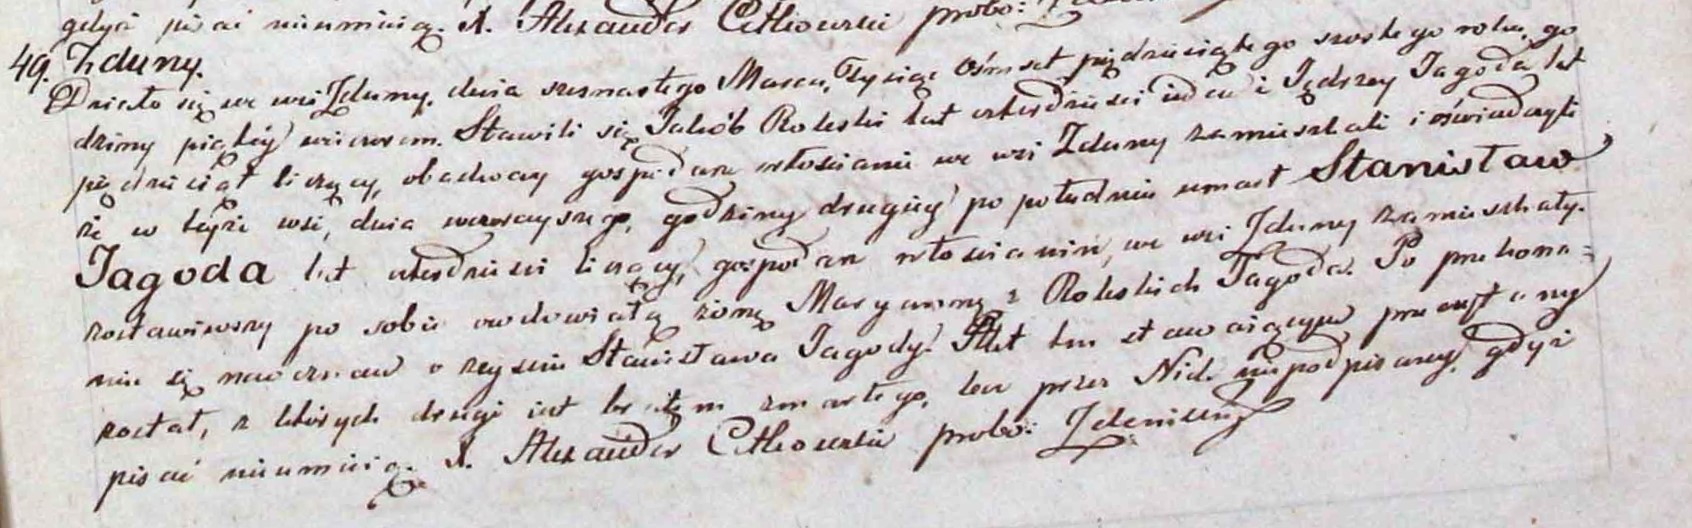 gdyż pisać nieumieią. X. Alexander Ćtkowski probo:
49. Zduny.
Działo się we wsi Zduny, dnia szesnastego Marca, Tysiąc Ośmset pięćdziesiątego szostego roku, go
dziny piątéy wieczorem. Stawili się Jakób Roleski lat czterdzieści ieden i Jędrzey Jagoda lat
pięćdziesiąt liczący, obadway gospodarze włościanie we wsi Zduny zamieszkali i oświadczyli
że w teyże wsi, dnia wczorayszego, godziny drugiey po południu umarł Stanisław
Jagoda lat czterdzieści liczący, gospodarz włościanin, we wsi Zduny zamieszkały.
zostawiwszy po sobie owdowiałą żonę Maryannę z Roleskich Jagoda. Po przekona=
niu się naocznem o zeyściu Stanisława Jagody. Akt ten stawaiącym przeczytany
został, z których drugi iest bratem zmarłego, lecz przez Nich niepodpisany, gdyż
pisać nieumieią. X. Alexander Ćtkowski probo: